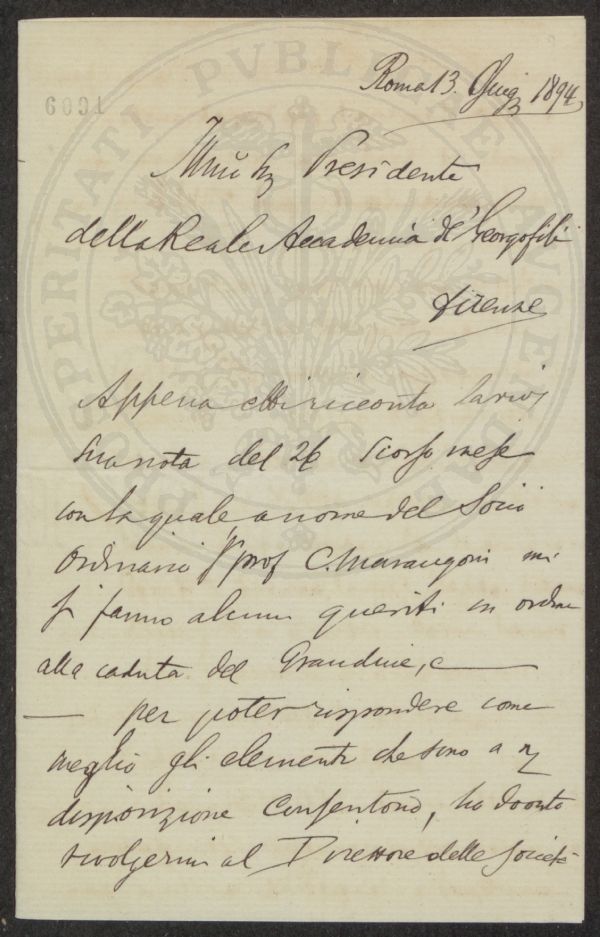 Roma 13. Giug 1894
6091
Presidente
della Reale Accademia de' Georgofili
Firenze
Appena ebbi ricevuta
sua nota del 26 scorso mese
con la quale a nome del Socio
Ordinario prof C. Marangoni mi
si fanno alcuni quesiti in ordine
alla caduta del Grandine, e
per poter rispondere come
meglio gli elementi che sono a
disposizione consentono, ho dovuto
rivolgermi al Direttore delle Società
PROSPERITATI PVBLICAE AVGENDAE